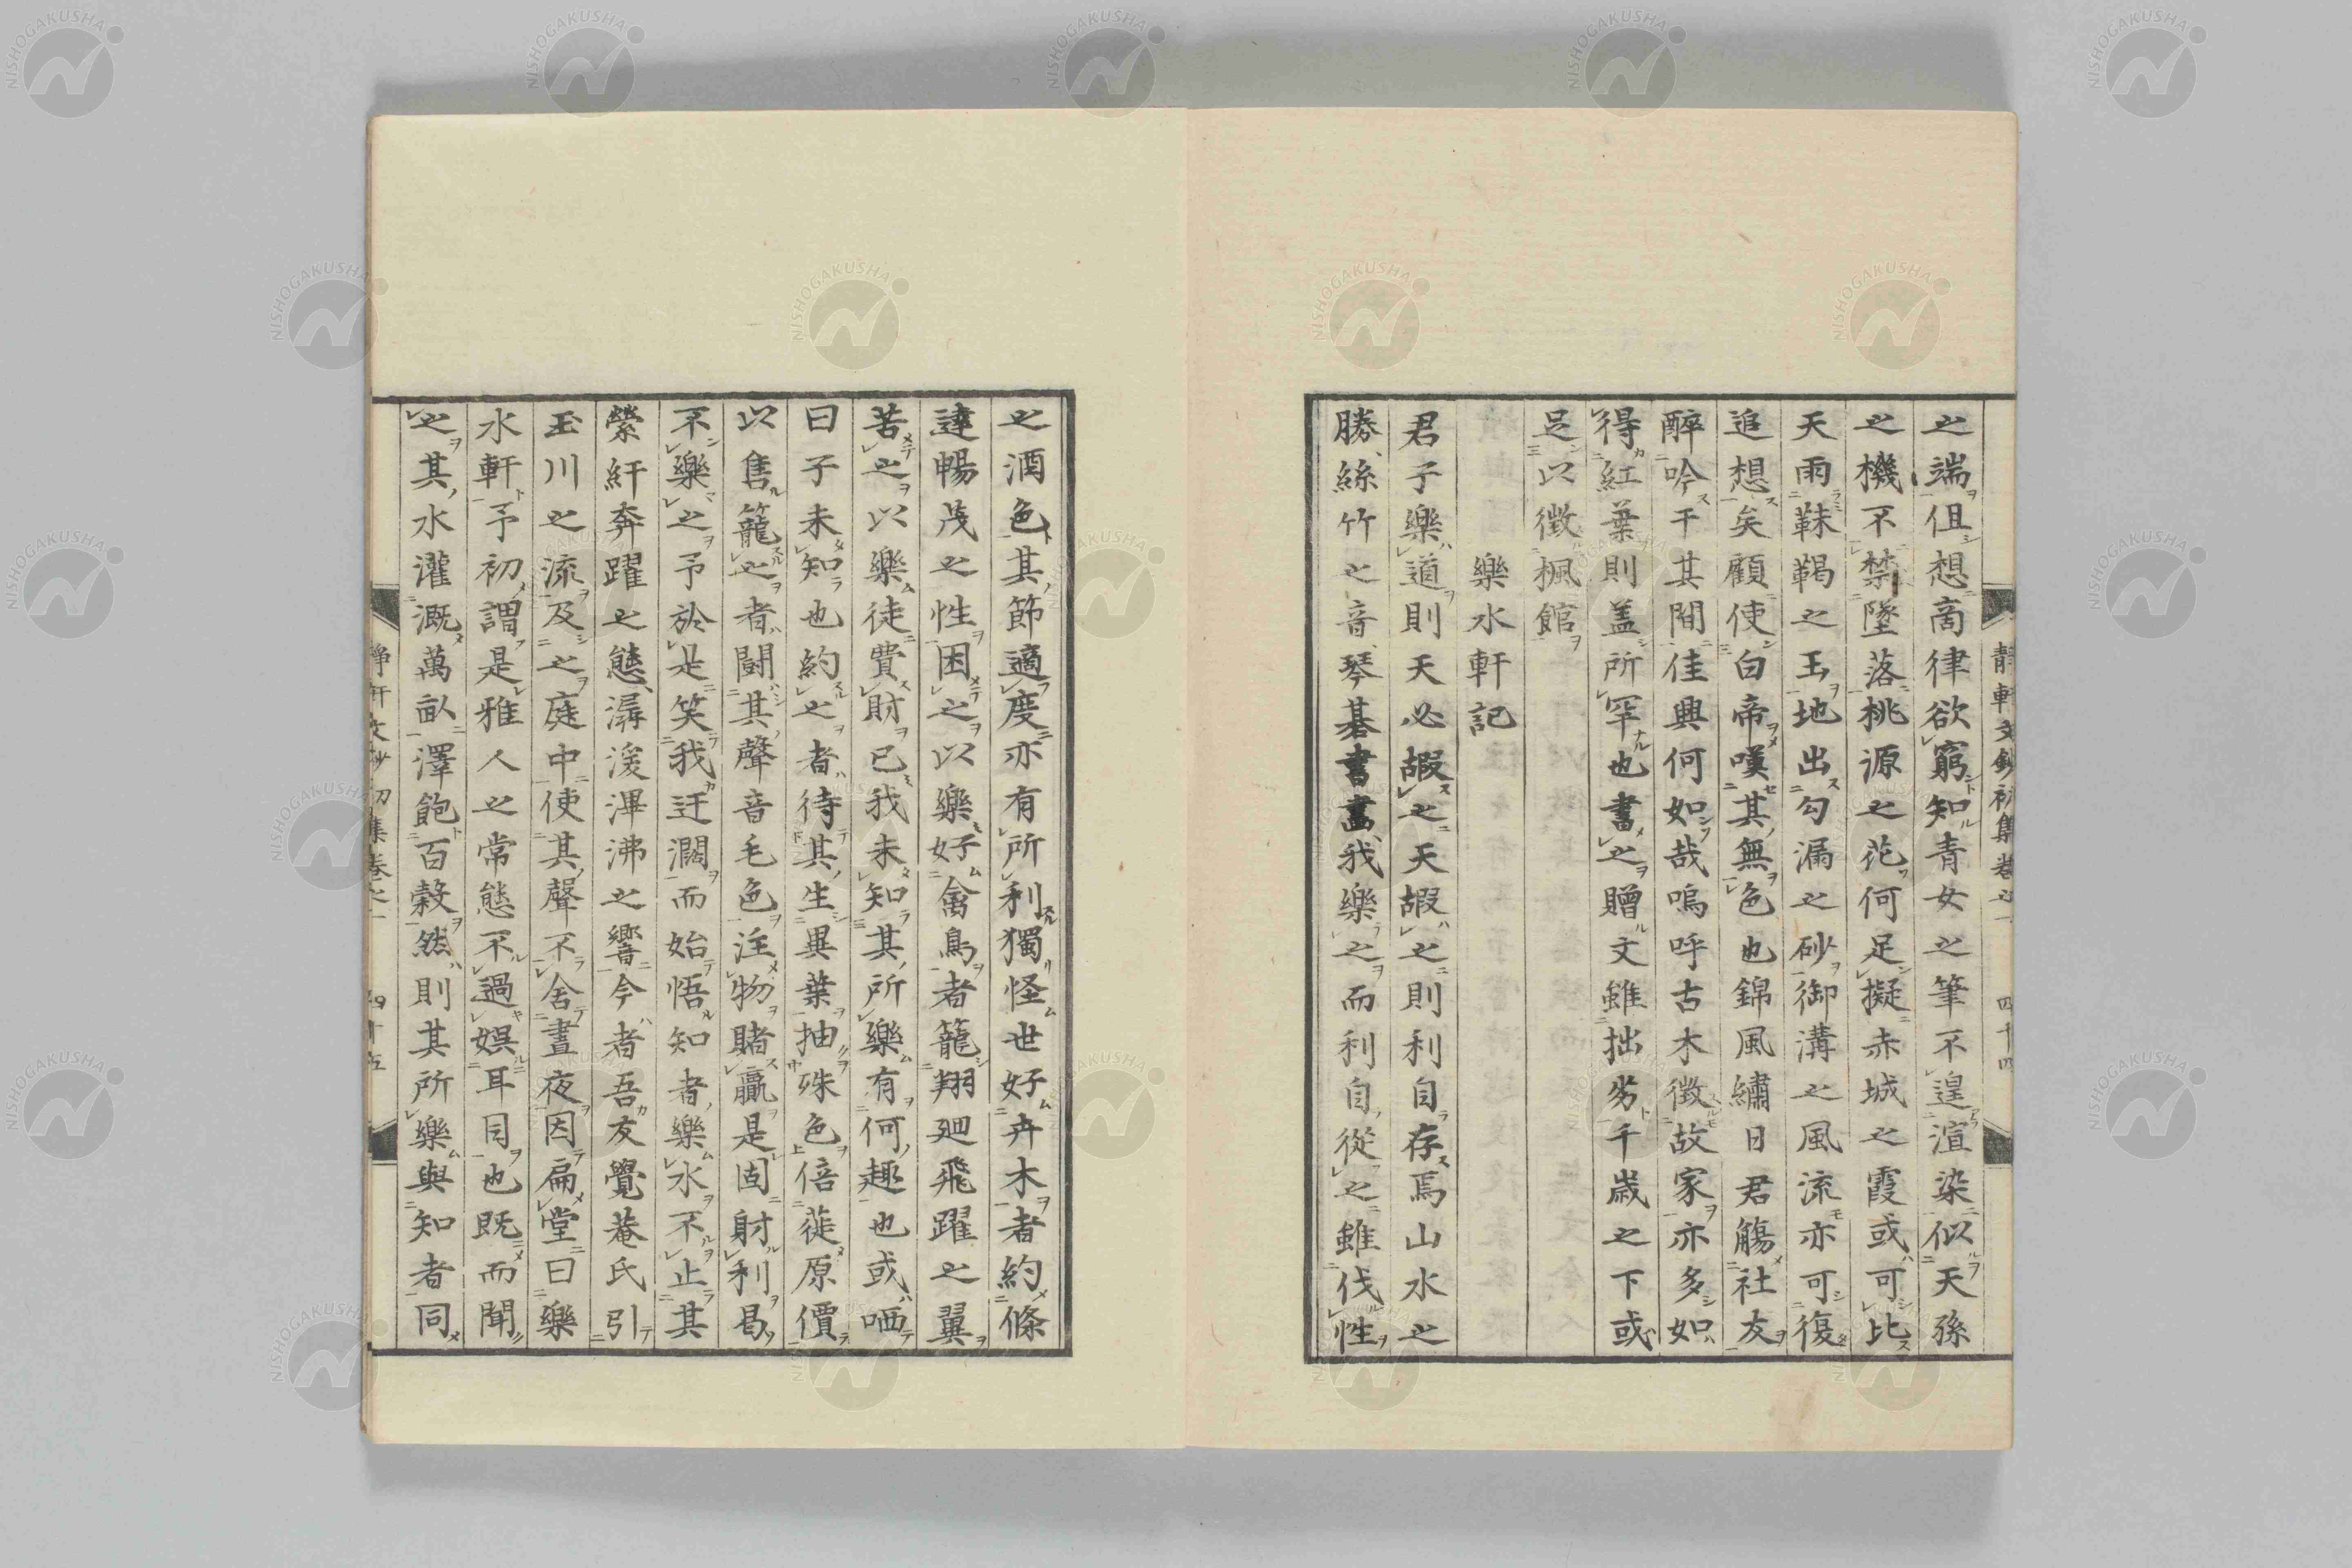 之端但想商律欲窮知青女之筆不遑渲染似天孫
之機不禁墜落桃源之花何足擬赤城之霞或可比
天雨靺鞨之玉地出勾漏之砂御溝之風流亦可復
追想矣顧使白帝嘆其無色也錦風繡日君觴社友
醉吟干其間佳興何如哉嗚呼古木徴故家亦多如
得紅葉則盖所罕也書之贈文雖拙劣千歳之下或
足以徴楓館
樂水軒記
君子樂道則天必嘏之天嘏之則利自存焉山水之
勝絲竹之音琴碁書畫我樂之而利自從之雖伐性
之酒色其節適度亦有所利獨怪世好卉木者約條
達暢茂之性困之以樂好禽鳥者籠翔廻飛躍之翼
苦之以樂徒費財已我未知其所樂有何趣也或哂
曰子未知也約之者待其生異葉抽殊色倍蓰原價
以售籠之者闘其聲音毛色注物賭贏是固射利曷
不樂之予於是笑我迂濶而始悟知者樂水不止其
縈紆奔躍之態潺湲渾沸之響今者吾友覺菴氏引
玉川之流及之庭中使其聲不舍晝夜因扁堂曰樂
水軒予初謂是雅人之常態不過娯耳目也既而聞
之其水灌漑萬畝澤飽百穀然則其所樂與知者同
靜軒文鈔初集卷之一 四十四
靜軒文鈔初集卷之一 四十五
NISHOGAKUSHA